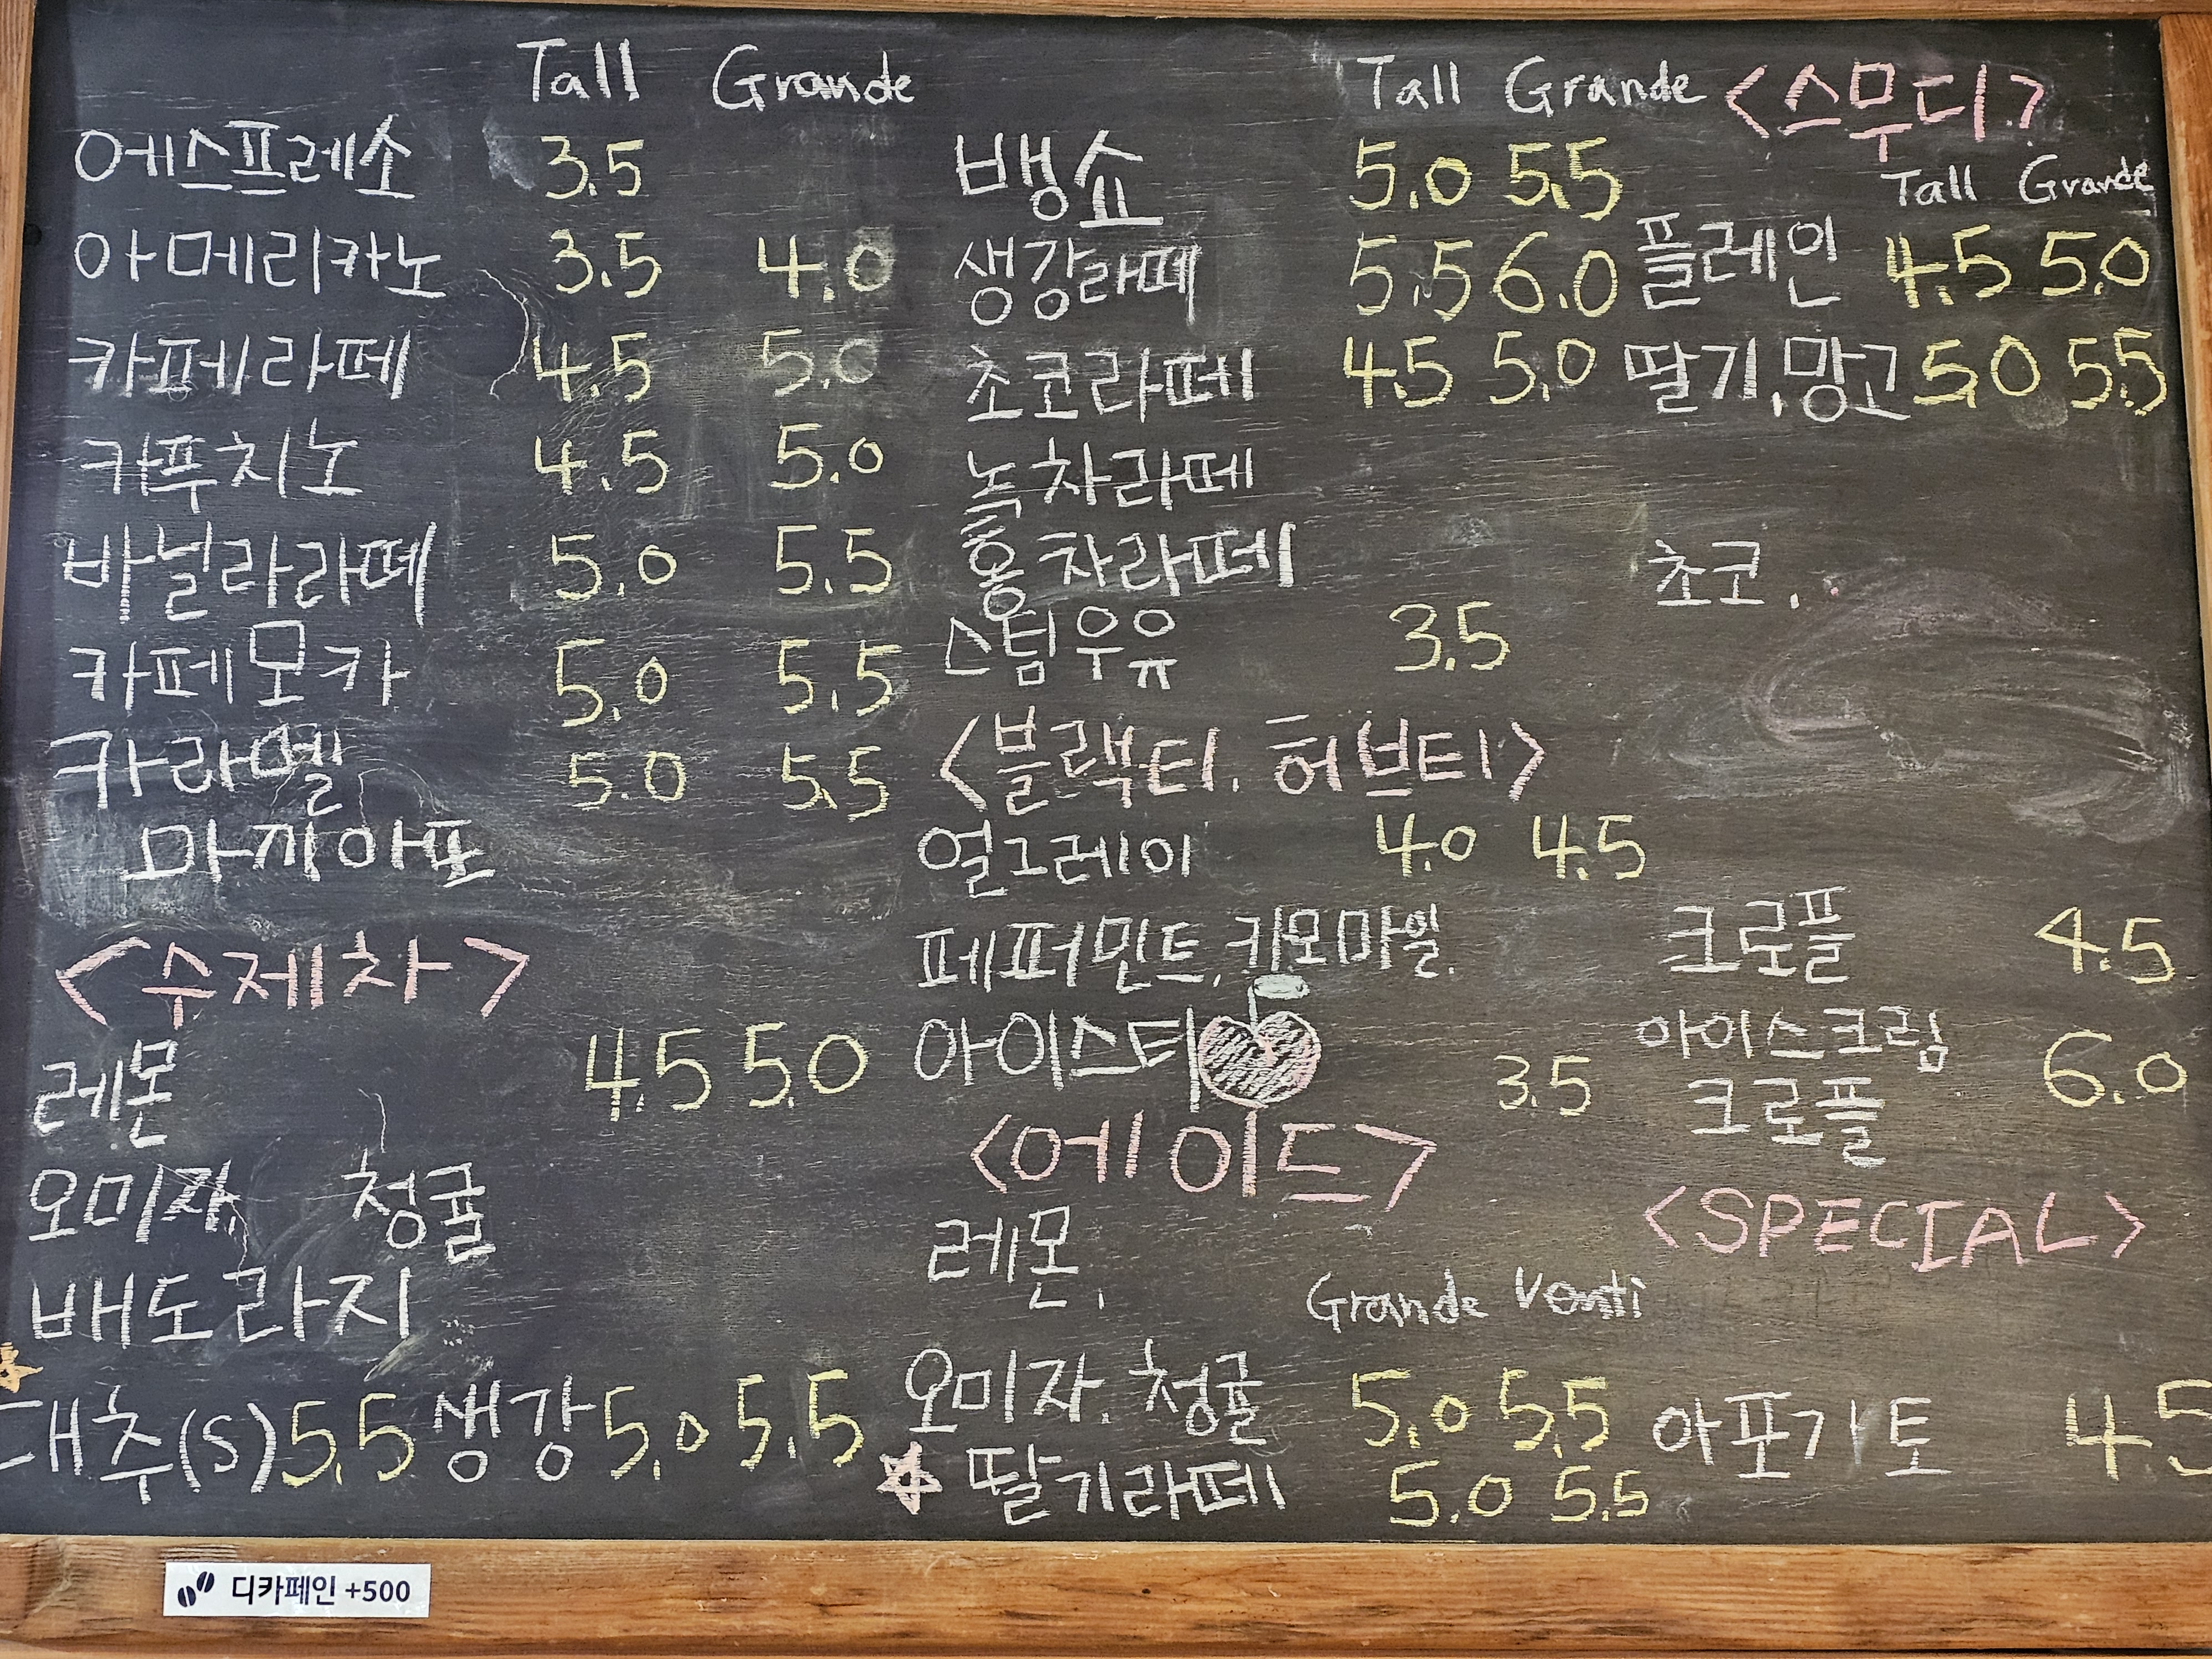 Tall Grande
에스프레소 3.5
아메리카노 3.5 4.0
카페라떼 4.5 5.0
카푸치노 4.5 5.0
바닐라라떼 5.0 5.5
카페모카 5.0 5.5
카라멜 5.0 5.5
마끼아또
<수제차>
레몬 4.5 5.0
오미자, 청귤
배도라지
대추(S) 5.5 생강 5.0 5.5
Tall Grande
뱅쇼 5.0 5.5
생강라떼 5.5 6.0
초코라떼 4.5 5.0
녹차라떼
홍차라떼
스팀우유 3.5
<블랙티. 허브티>
얼그레이 4.0 4.5
페퍼민트, 캐모마일.
아이스티 3.5
<에이드>
레몬,
Grande Venti
오미자. 청귤 5.0 5.5
딸기라떼 5.0 5.5
<스무디>
Tall Grande
플레인 4.5 5.0
딸기,망고 5.0 5.5
초코,
크로플 4.5
아이스크림
크로플 6.0
<SPECIAL>
아포가토 4.5
디카페인 +500